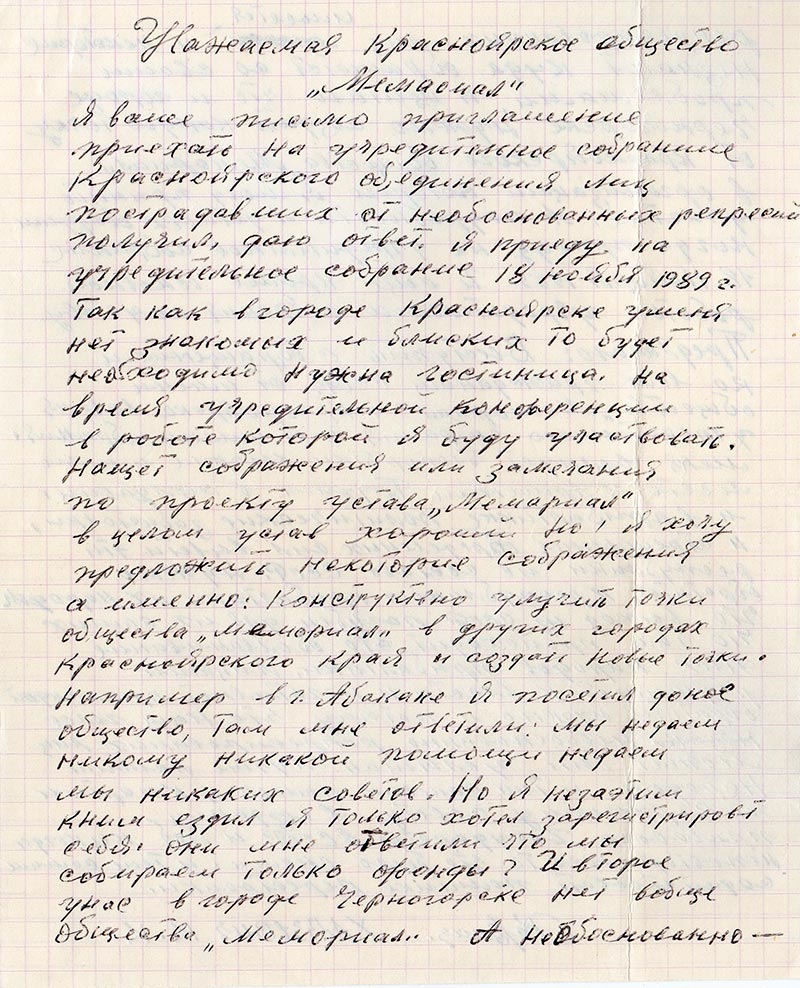 Уважаемая Красноярское общество
„Мемасиал"
Я ваше письмо приглашение
приехать на учредительное собрание
Красноярского об,единения лиц
пострадавших от необоснованных репресий
получил, даю ответ. Я приеду на
учредительное собрание 18 ноября 1989 г.
Так как в городе Красноярске уменя
нет знакомых и блиских то будет
необходимо нужна гостиница. на
время учредительной конференции
в роботе которой я буду участвовать.
Нащет сображения или замечания
по проекту устава „Мемариал"
в целом устав хороший но! я хочу
предложить некоторие сображения
а именно: Конструктвно улучит точки
общества „Мемориал„ в других городах
Красноярского Края и создат новые точки.
Например в г. Абакане я посетил доное
общество, там мне ответили: мы недаем
никому никакой помощи недаем
мы никаких советов. Но я незаэтим
кним ездил я только хотел зарегистрироват
себя. они мне ответили что мы
собираем только фонды? И второе
унас в городе Черногорске нет вобще
общества „Мемориал„ А необоснованно —